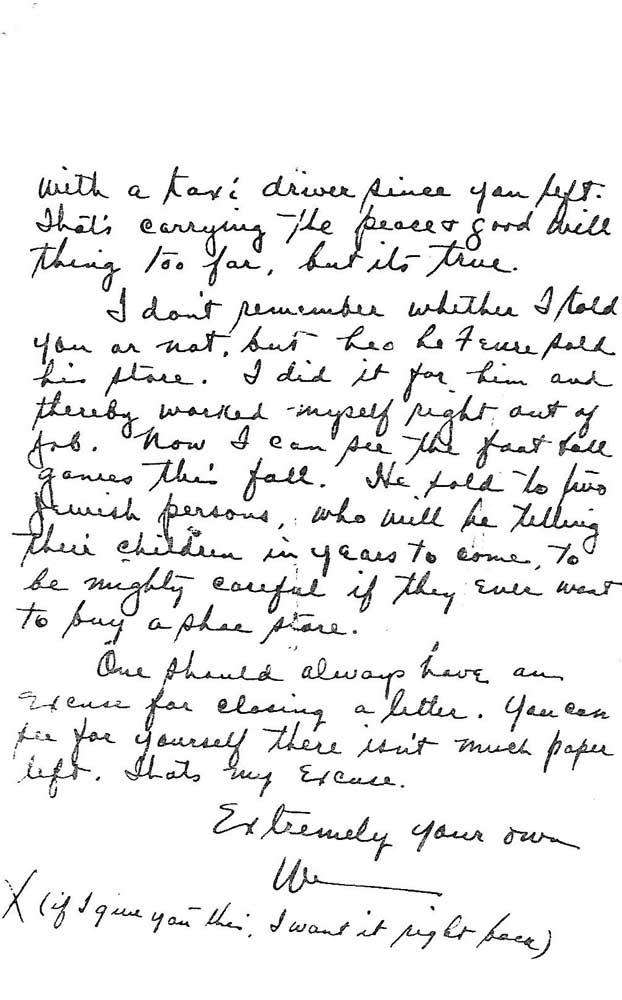 with a taxi driver since you left.
That's carrying the peace & good will
thing too far, but its true.
I don't remember whether I told
you or not, but Leo Le Feure sold
his store. I did it for him and
thereby worked myself right out of
job. Now I can see the foot ball
games this fall. He sold to two
Jewish persons, who will be telling
their children in years to come, to
be mighty careful if they ever want
to buy a shoe store.
One should always have an
excuse for closing a letter. You can
see for yourself there isn't much paper
left. Thats my excuse.
Extremely your own
X (if I give you this, I want it right back)